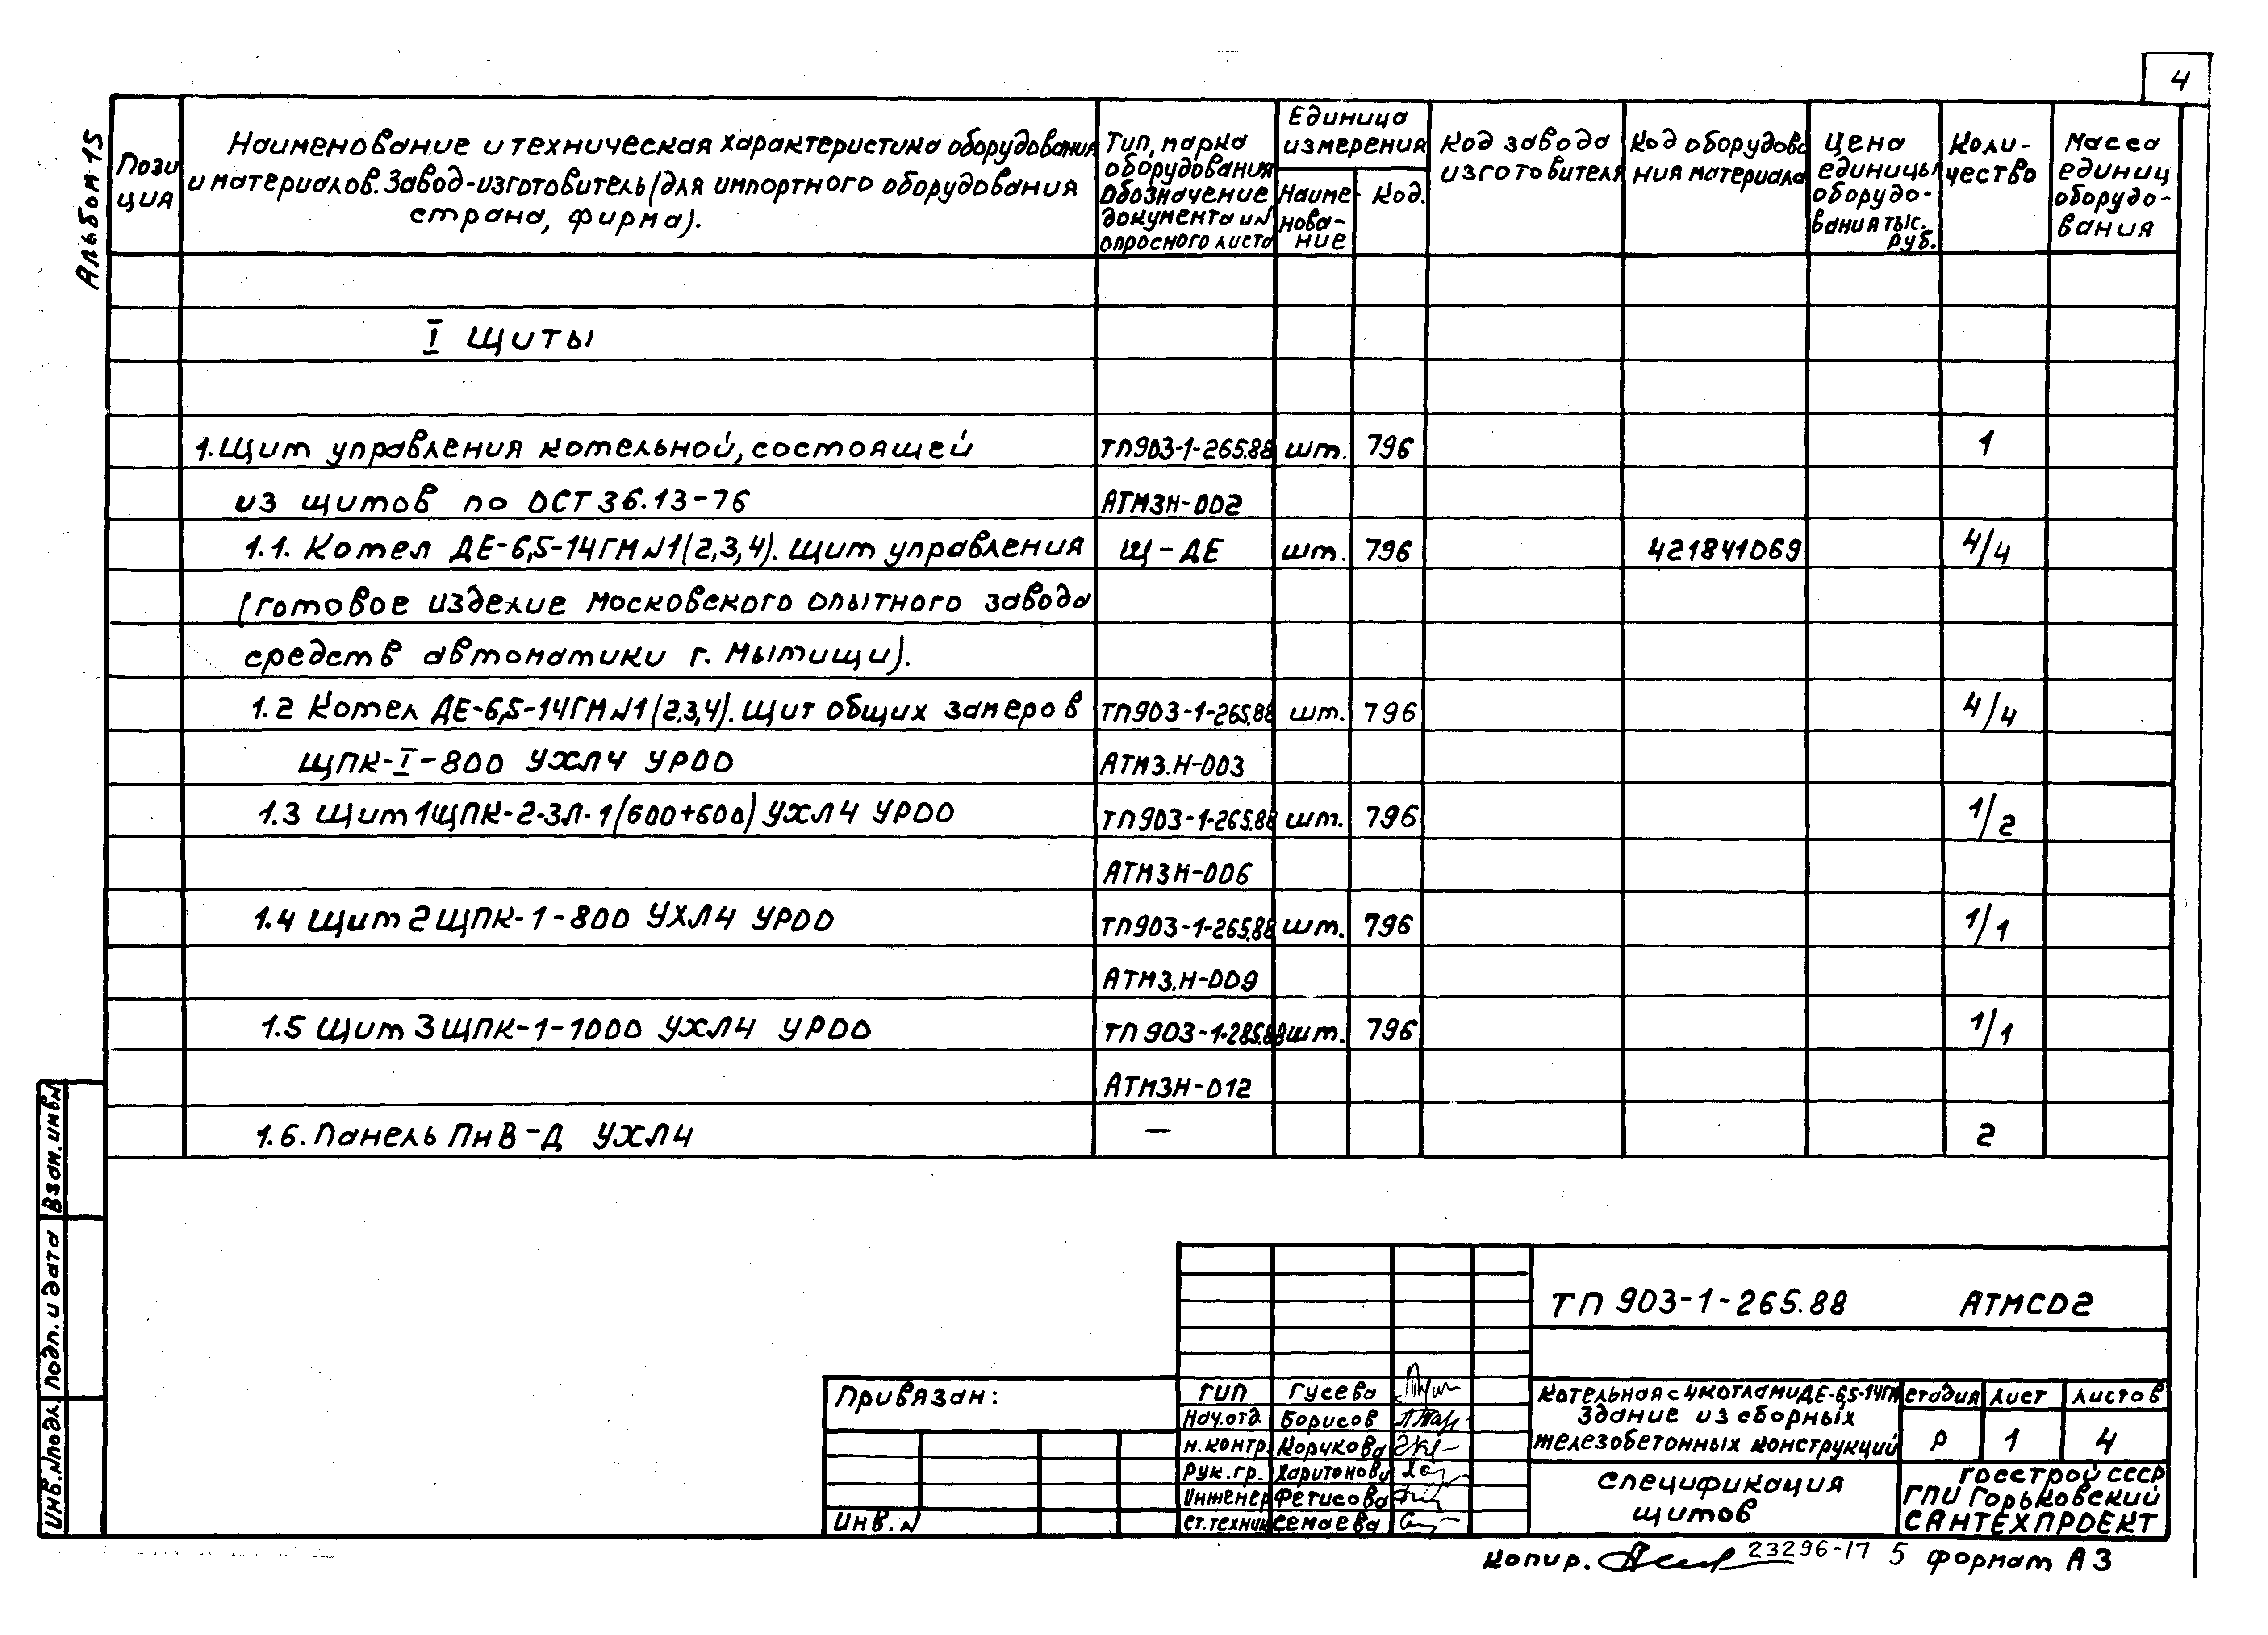 4
Альбом 15
Пози
ция
Наименование и техническая характеристика оборудования
и материалов. Завод-изготовитель (для импортного оборудования
страна, фирма).
Тип, марка
оборудования
обозначение
документа и N
опросного листа
Единица
измерения
Наиме-
нова-
ние
Код.
Код завода
изготовителя
Код оборудова
ния материала
Цена
единицы
оборудо-
вания тыс.
руб.
Коли-
чество
Масса
единиц
оборудо-
вания
I Щиты
1. Щит управления котельной, состоящей ТП903-1-265.88 шт. 796 1
из щитов по ОСТ 36.13-76 АТМ3Н-002
1.1. Котел ДЕ-6,5-14ГМ N1(2,3,4). Щит управления Щ-ДЕ шт. 796 421841069 4/4
(готовое изделие Московского опытного завода
средств автоматики г. Мытищи).
1.2 Котел ДЕ-6,5-14ГМ N1(2,3,4). Щит общих замеров ТП903-1-265.88 шт. 796 4/4
ЩПК-I-800 УХЛ4 УР00 АТМ3.Н-003
1.3 Щит 1ЩПК-2-ЗЛ-1(600+600) УХЛ4 УР00 ТП903-1-265.88 шт. 796 1/2
АТМ3Н-006
1.4 Щит 2ЩПК-1-800 УХЛ4 УР00 ТП903-1-265.88 шт. 796 1/1
АТМ3.Н-009
1.5 Щит 3ЩПК-1-1000 УХЛ4 УР00 ТП 903-1-285.88 шт. 796 1/1
АТМ3Н-012
1.6. Панель ПнВ-Д УХЛ4 — 2
Взам. инв N
Подп. и дата
Инв. N подл.
Привязан:
Инв. N
ГИП Гусева
Нач. отд. Борисов
Н. контр. Корчкова
Рук. гр. Харитонови
Инженер Фетисова
Ст. техник Семаева
ТП 903-1-265.88 АТМС02
Котельная с 4 котлами ДЕ-6,5-14ГМ
Здание из сборных
железобетонных конструкций
стадия лист листов
Р 1 4
Спецификация
щитов
Госстрой СССР
ГПИ Горьковский
САНТЕХПРОЕКТ
Копир. 23296-17 5 формат А3